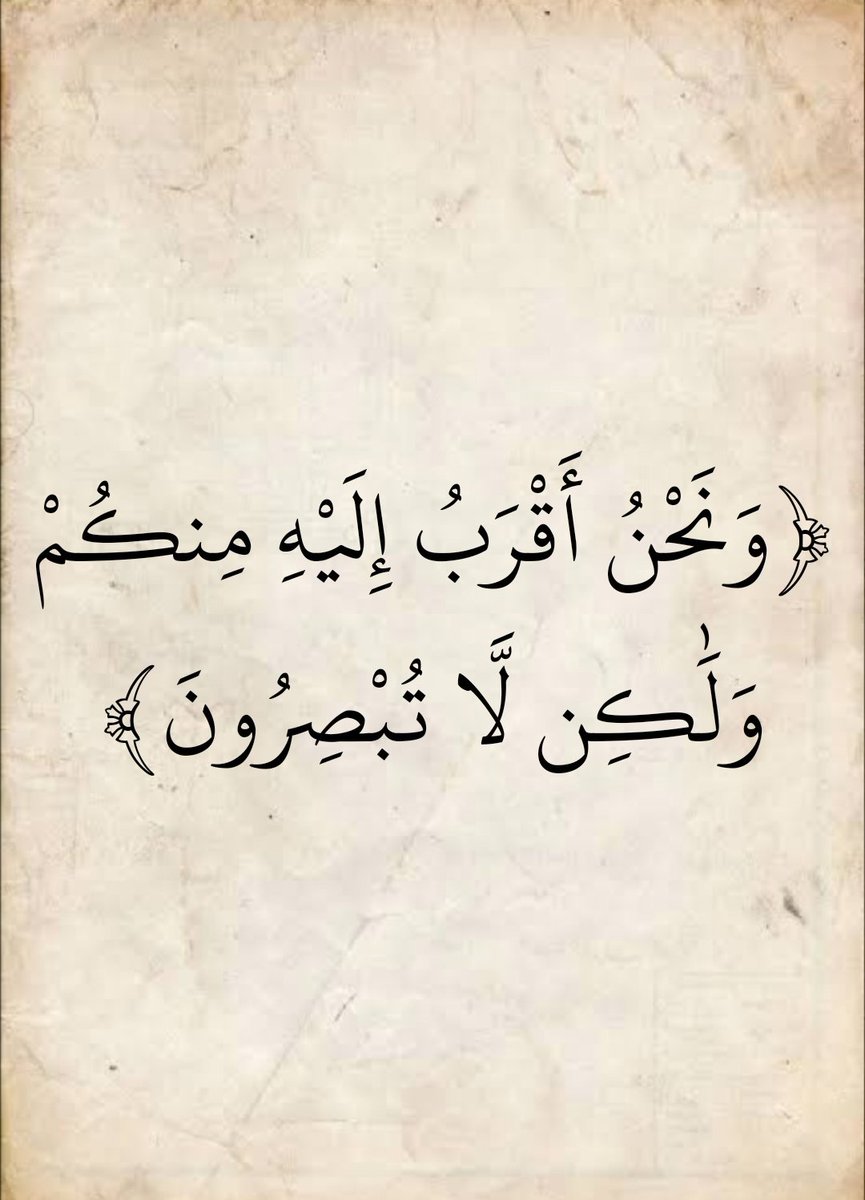 ﴿وَنَحْنُ أَقْرَبُ إِلَيْهِ مِنكُمْ
وَلَٰكِن لَّا تُبْصِرُونَ﴾